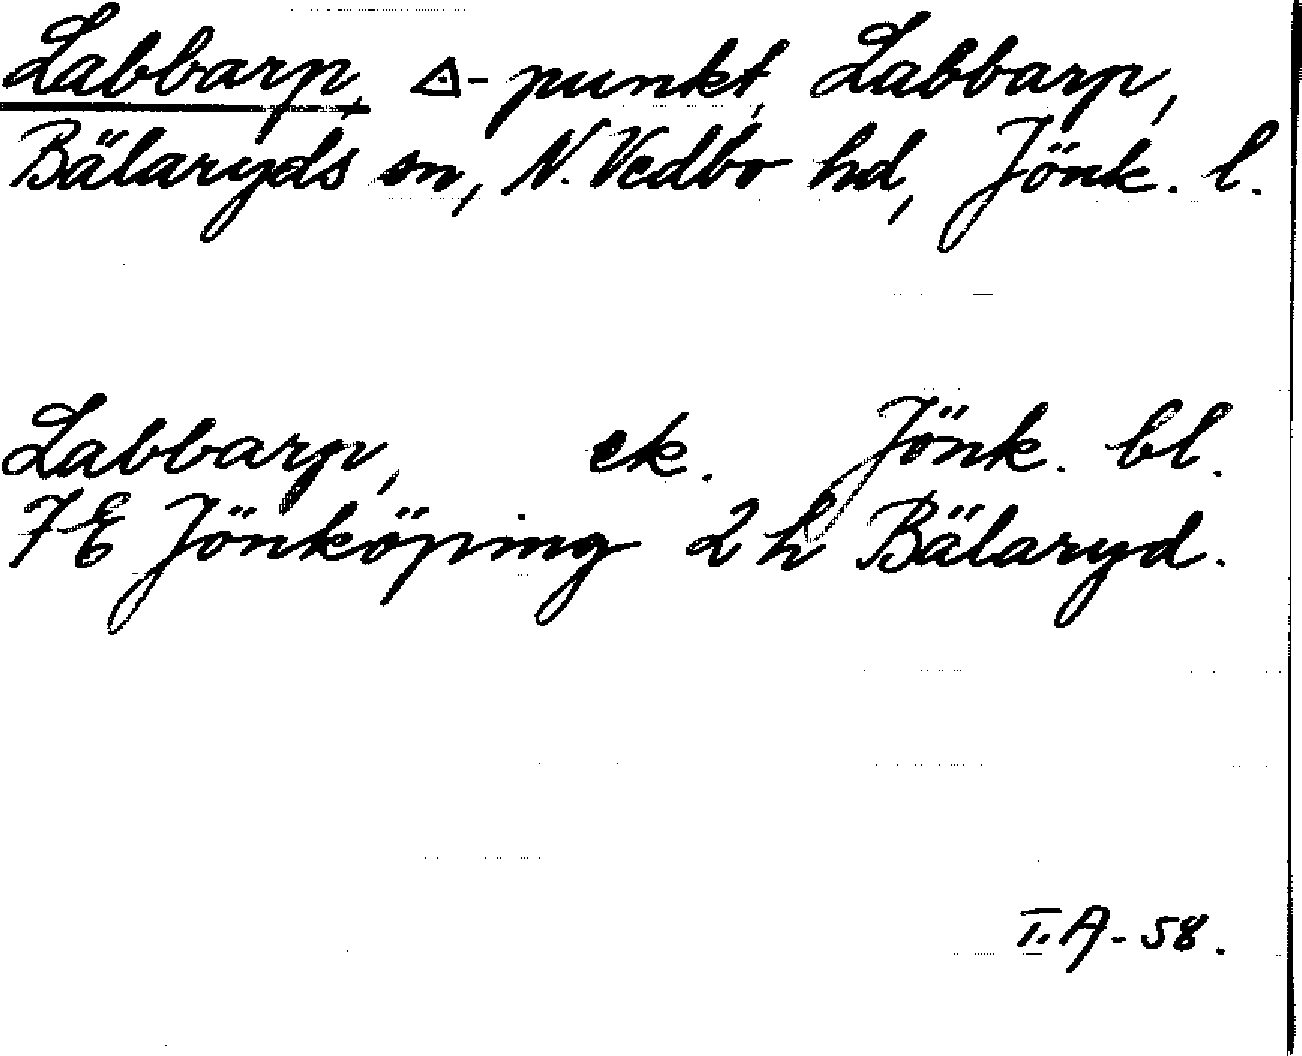 Labbarp, △-punkt, Labbarp,
Bälaryds sn, N. Vedbo hd, Jönk. l.
Labbarp, ek. Jönk. bl.
7E Jönköping 2h Bälaryd.
I.A-58.